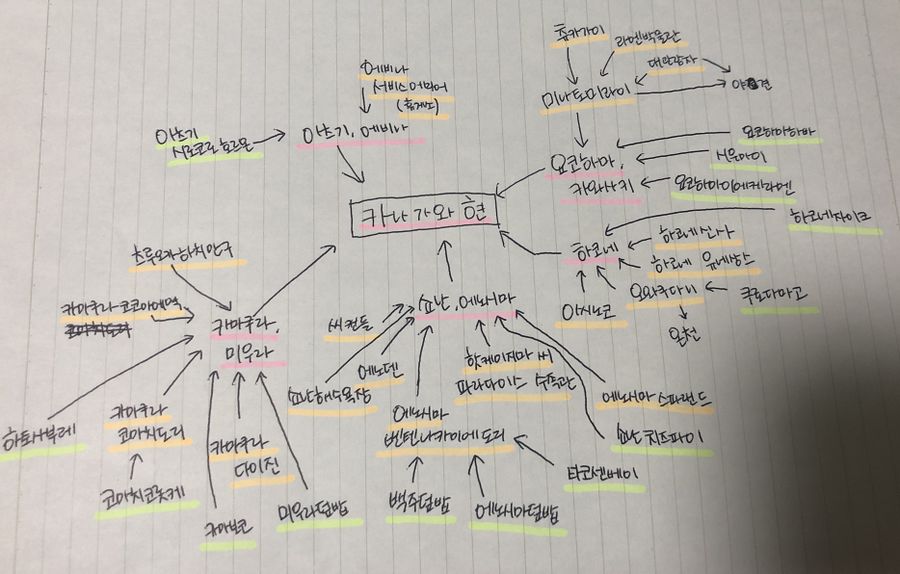 츄카가이
라멘박물관
대관람차
미나토미라이
야경
에비나
서비스 에리어
(휴게소)
아츠기
시로코로 호르몬
아츠기, 에비나
요코하마,
카와사키
요코하마하바
시우마이
요코하마이에케라멘
카나가와 현
하코네자이크
하코네
하코네신사
하코네 유네상스
오와쿠다니
쿠로다마고
아시노코
온천
츠루오카하치만구
카마쿠라 코코마에역
카마쿠라,
미우라
쇼난, 에노시마
씨캔들
에노덴
쇼난해수욕장
핫케이지마 씨
파라다이스 수족관
에노시마 스파랜드
쇼난치즈파이
하토사부레
카마쿠라
코마치도리
코마치코롯케
카마쿠라
다이진
카마보코
미우라덮밥
에노시마
벤텐나카미세도리
타코센베이
뱅어덮밥
에노시마덮밥